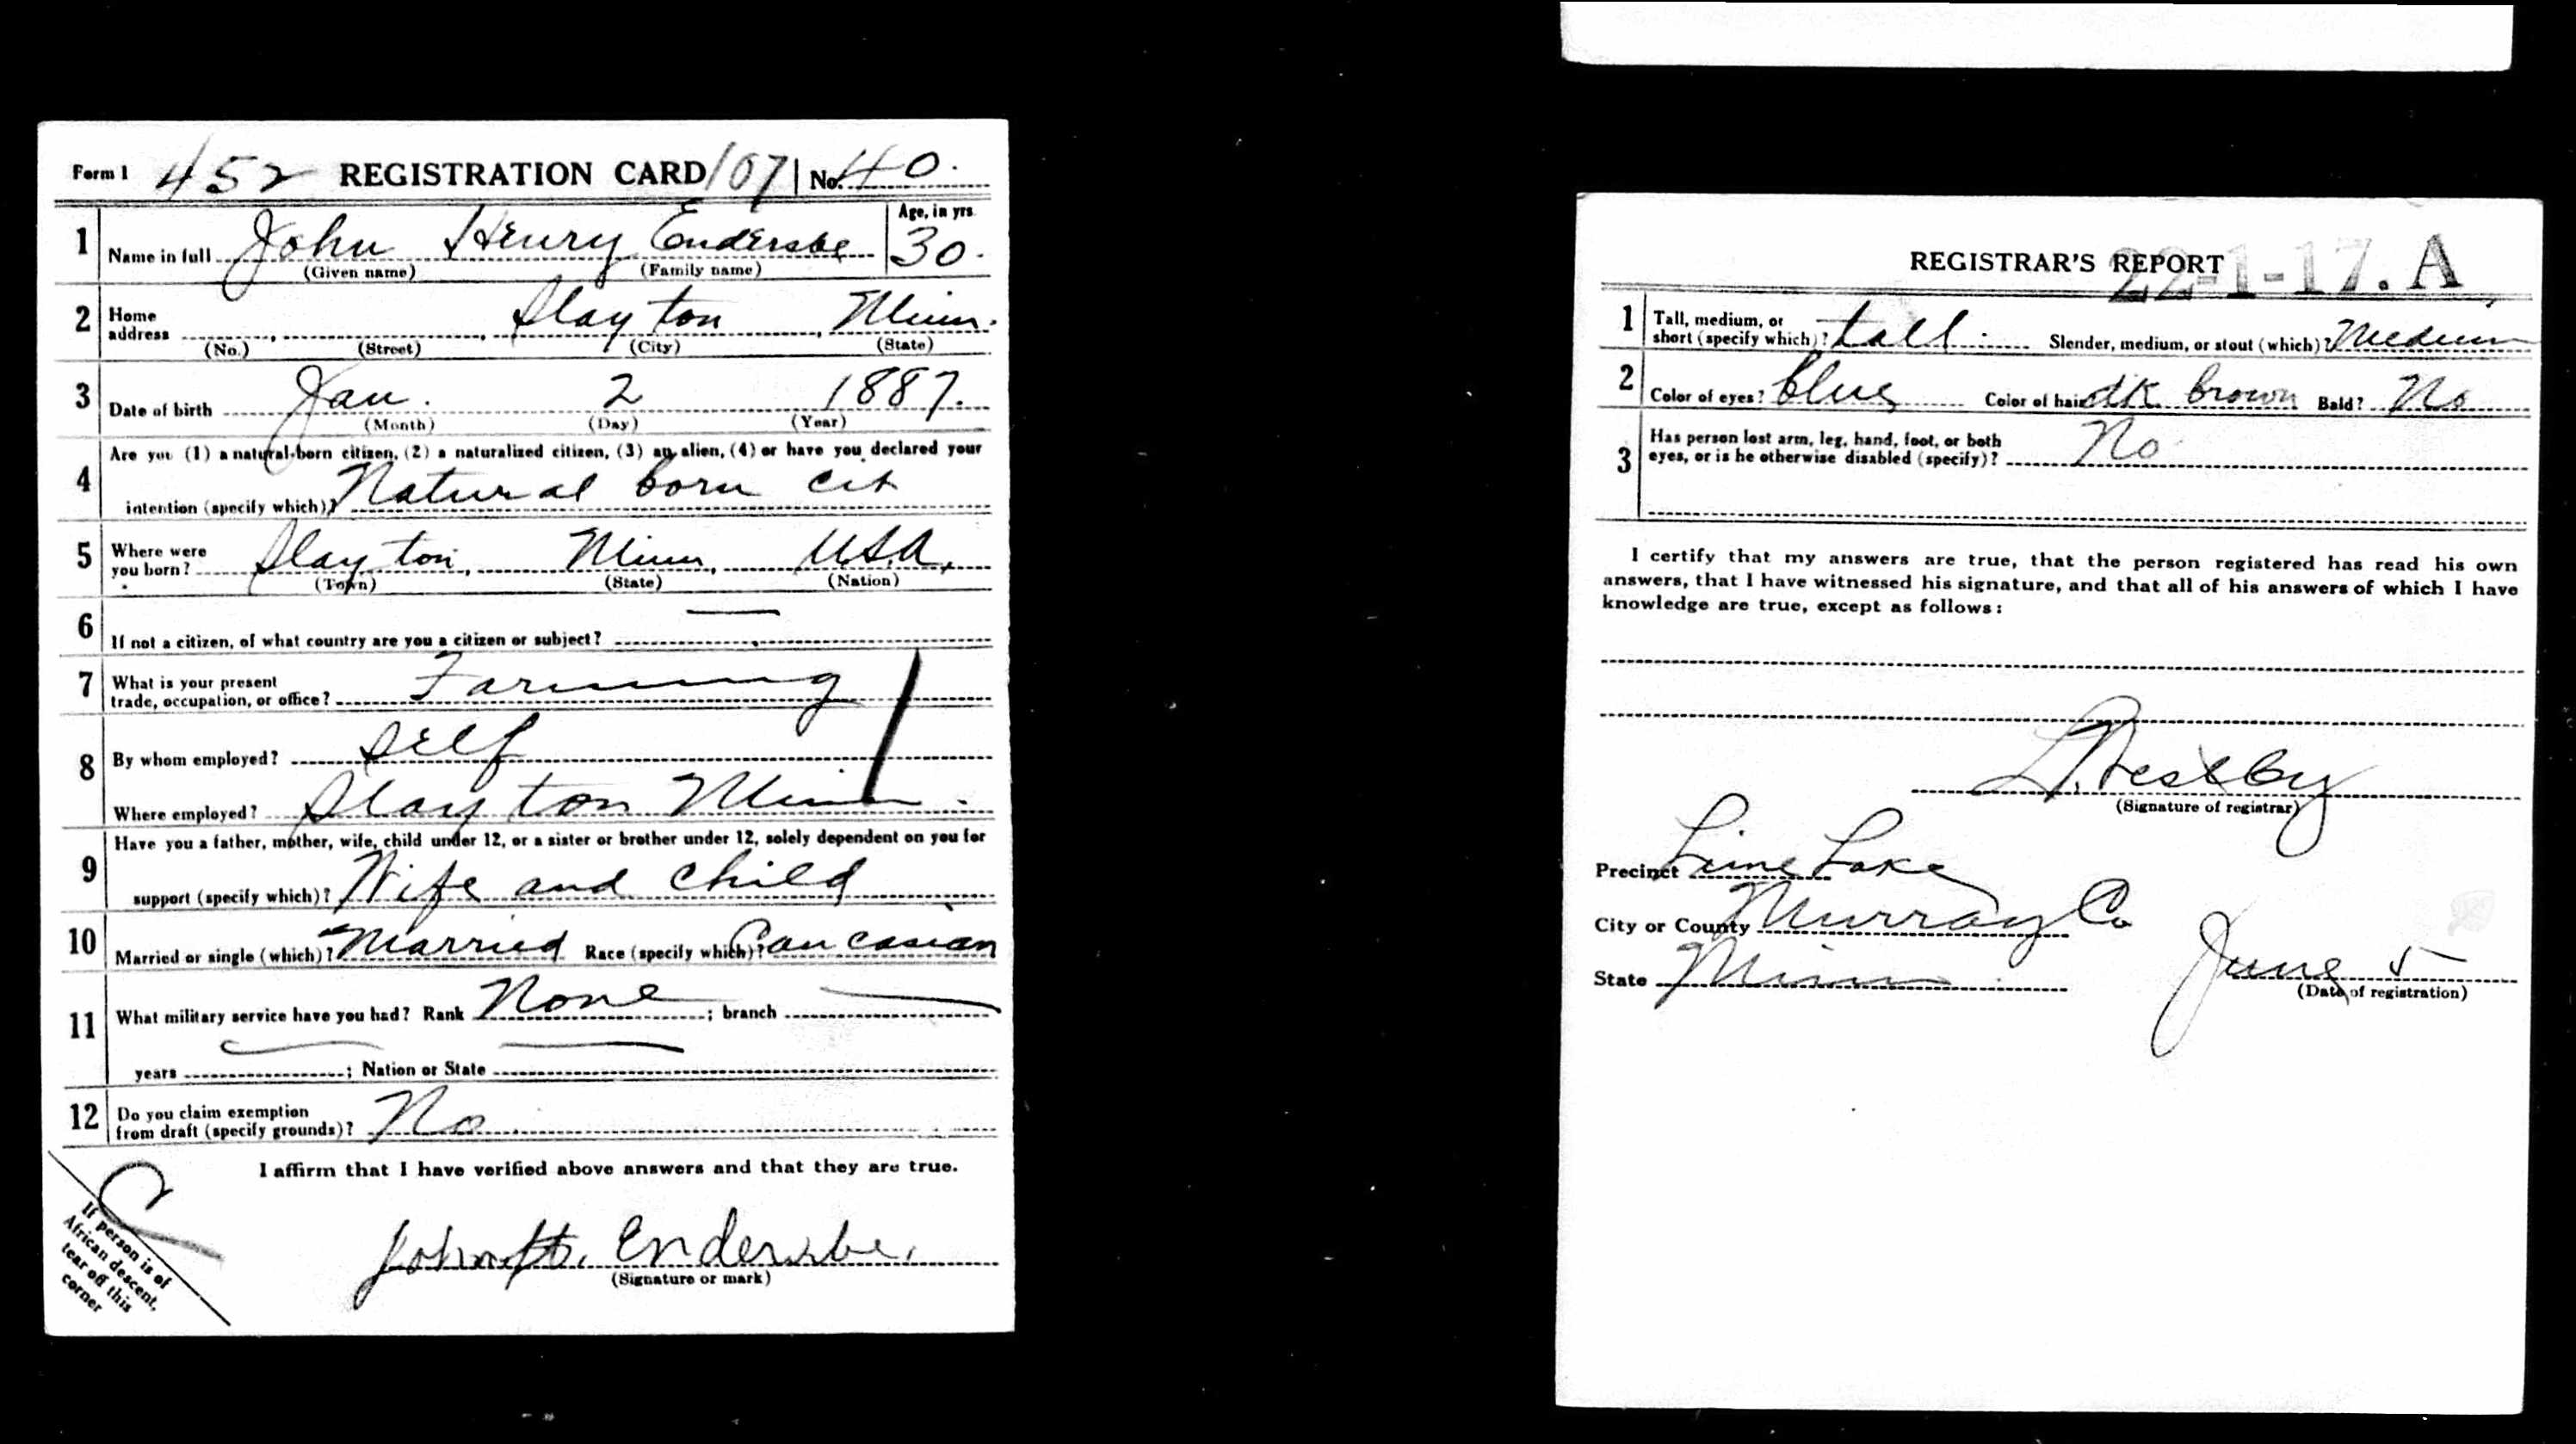 Form 1 452 REGISTRATION CARD 107 No. 40.
1 Name in full John Henry Endersbe Age, in yrs. 30.
(Given name) (Family name)
2 Home address Slayton, Minn.
(No.) (Street) (City) (State)
3 Date of birth Jan. 2 1887.
(Month) (Day) (Year)
4 Are you (1) a natural-born citizen, (2) a naturalized citizen, (3) an alien, (4) or have you declared your
intention (specify which)? Natural born cit
5 Where were you born? Slayton, Minn, U.S.A.
(Town) (State) (Nation)
6 If not a citizen, of what country are you a citizen or subject? —
7 What is your present trade, occupation, or office? Farming
8 By whom employed? Self
Where employed? Slayton Minn.
9 Have you a father, mother, wife, child under 12, or a sister or brother under 12, solely dependent on you for
support (specify which)? Wife and child
10 Married or single (which)? Married Race (specify which)? Caucasian
11 What military service have you had? Rank None; branch —
years —; Nation or State —
12 Do you claim exemption from draft (specify grounds)? No
I affirm that I have verified above answers and that they are true.
John H. Endersbe.
(Signature or mark)
If person is of
African descent,
tear off this
corner
REGISTRAR'S REPORT 22-1-17. A
1 Tall, medium, or short (specify which)? tall Slender, medium, or stout (which)? Medium
2 Color of eyes? blue Color of hair dk brown Bald? No
3 Has person lost arm, leg, hand, foot, or both
eyes, or is he otherwise disabled (specify)? No
I certify that my answers are true, that the person registered has read his own
answers, that I have witnessed his signature, and that all of his answers of which I have
knowledge are true, except as follows:
(Signature of registrar)
Precinct Lime Lake
City or County Murray Co
State Minn June 5
(Date of registration)